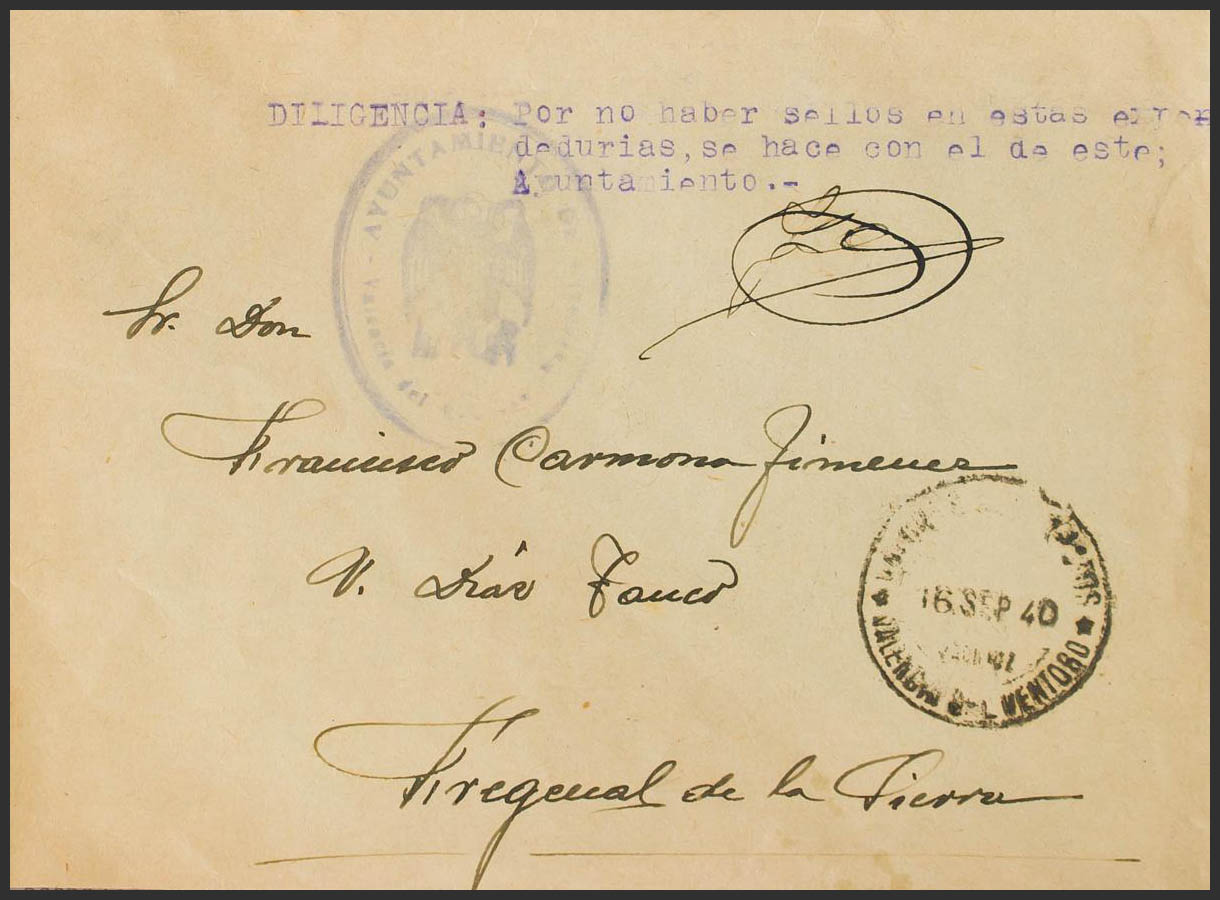 DILIGENCIA: Por no haber sellos en estas expen
dedurias, se hace con el de este;
Ayuntamiento.-
AYUNTAMIENTO DE
Valencia del
Sr. Don
Francisco Carmona Jimenez
V. Diáz Tanco
Fregenal de la Sierra
16 SEP 40
VALENCIA DEL MENTORO